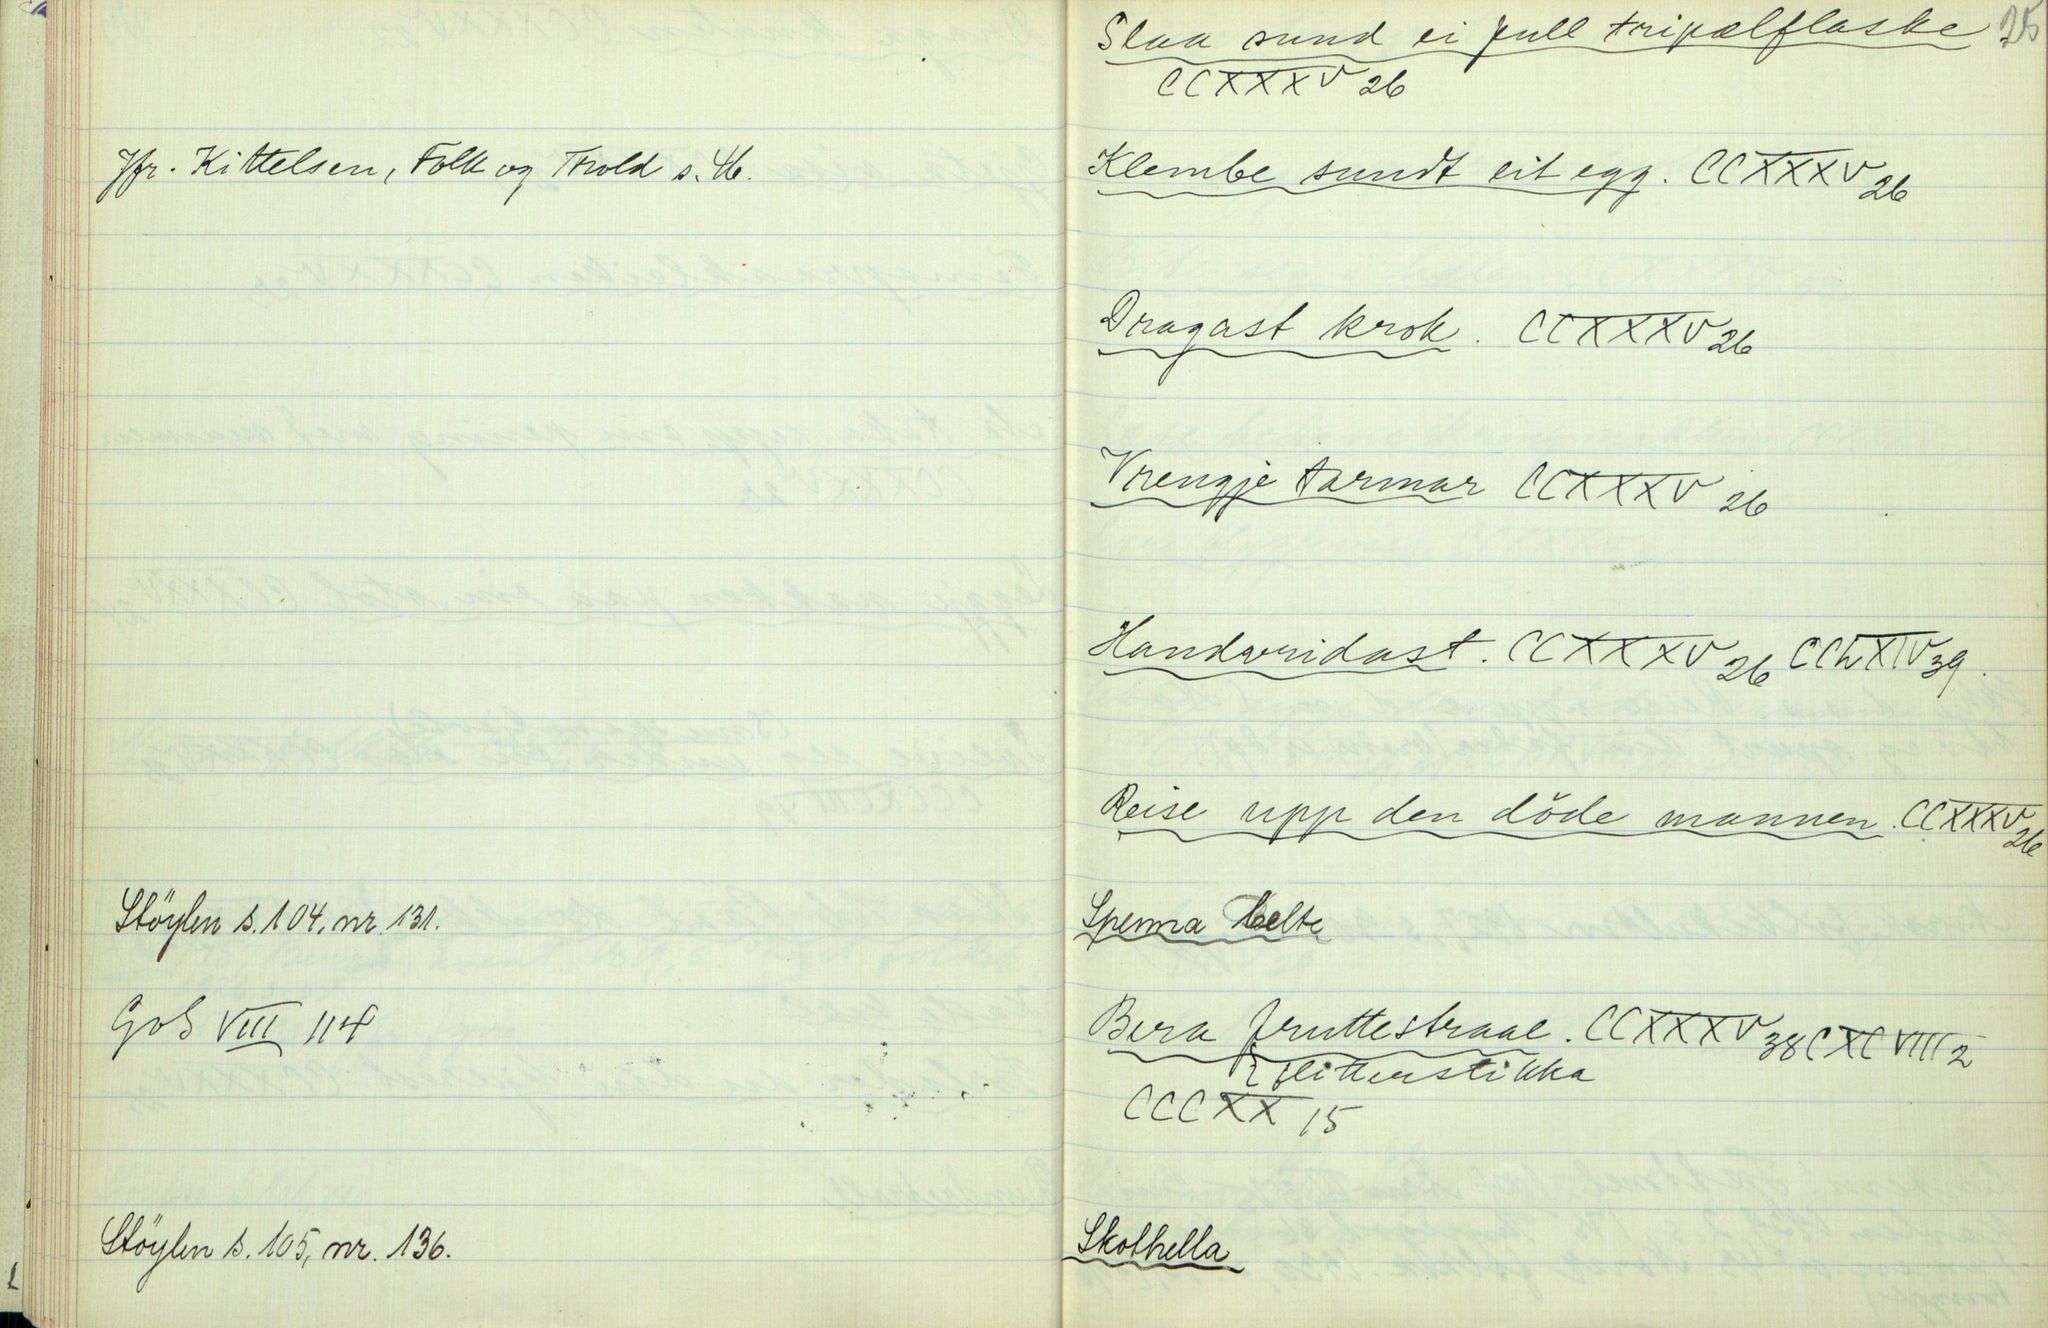 Jfr. Kittelsen, Folk og Trold s. 46.
Støylen s. 104, nr. 131.
GoS VIII 114
Støylen s. 105, nr. 136.
25
Slaa sund ei full tripælflaske
CCXXXV 26
Klembe sundt eit egg. CCXXXV 26
Dragast krok. CCXXXV 26
Vrengje tarmar CCXXXV 26
Handvridast. CCXXXV 26 39.
Reise upp den döde mannen. CCXXXV 26
Spenna belte
Bera fruttestraae. CCXXXV 38 CXCVIII 2
CCCXX 15
Skothella